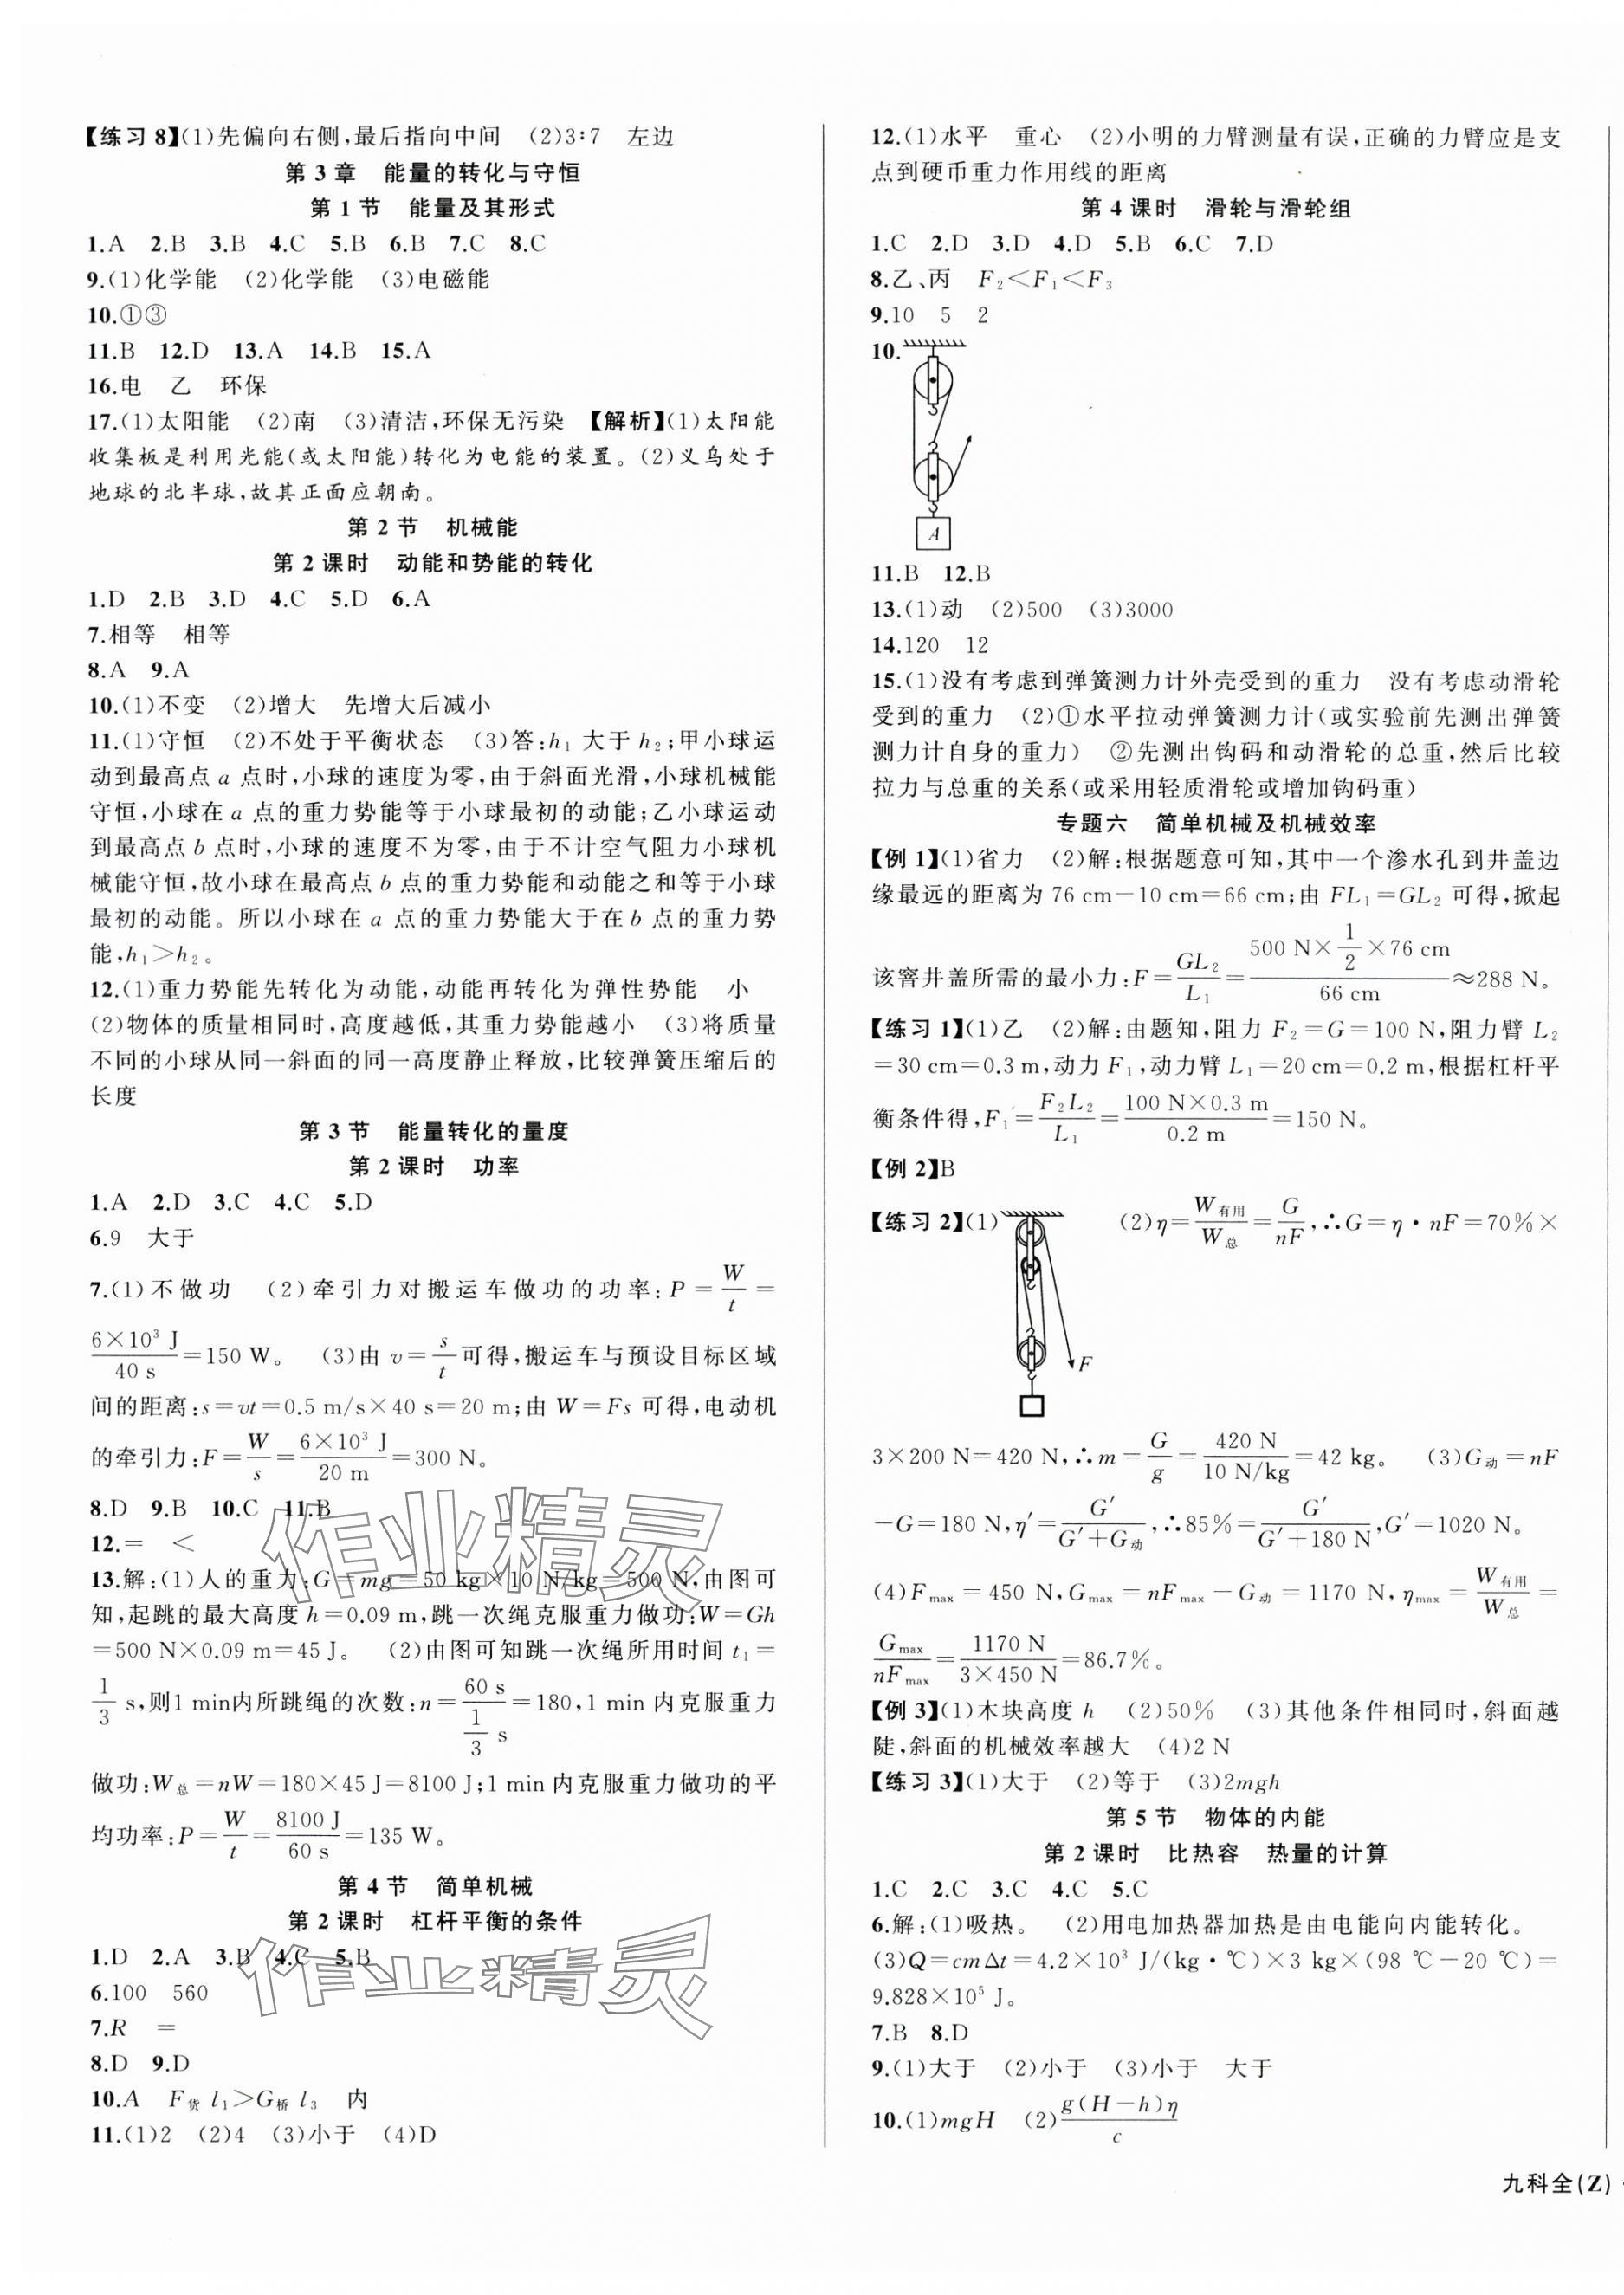 【练习8】(1)先偏向右侧,最后指向中间 (2)3∶7 左边
第3章 能量的转化与守恒
第1节 能量及其形式
1.A 2.B 3.B 4.C 5.B 6.B 7.C 8.C
9.(1)化学能 (2)化学能 (3)电磁能
10.①③
11.B 12.D 13.A 14.B 15.A
16.电 乙 环保
17.(1)太阳能 (2)南 (3)清洁,环保无污染 【解析】(1)太阳能
收集板是利用光能(或太阳能)转化为电能的装置。(2)义乌处于
地球的北半球,故其正面应朝南。
第2节 机械能
第2课时 动能和势能的转化
1.D 2.B 3.D 4.C 5.D 6.A
7.相等 相等
8.A 9.A
10.(1)不变 (2)增大 先增大后减小
11.(1)守恒 (2)不处于平衡状态 (3)答:h₁大于h₂;甲小球运
动到最高点a点时,小球的速度为零,由于斜面光滑,小球机械能
守恒,小球在a点的重力势能等于小球最初的动能;乙小球运动
到最高点b点时,小球的速度不为零,由于不计空气阻力小球机
械能守恒,故小球在最高点b点的重力势能和动能之和等于小球
最初的动能。所以小球在a点的重力势能大于在b点的重力势
能,h₁>h₂。
12.(1)重力势能先转化为动能,动能再转化为弹性势能 小
(2)物体的质量相同时,高度越低,其重力势能越小 (3)将质量
不同的小球从同一斜面的同一高度静止释放,比较弹簧压缩后的
长度
第3节 能量转化的量度
第2课时 功率
1.A 2.D 3.C 4.C 5.D
6.9 大于
7.(1)不做功 (2)牵引力对搬运车做功的功率:P=W/t=
6×10³ J/40 s=150 W。 (3)由v=s/t可得,搬运车与预设目标区域
间的距离:s=vt=0.5 m/s×40 s=20 m;由W=Fs可得,电动机
的牵引力:F=W/s=6×10³ J/20 m=300 N。
8.D 9.B 10.C 11.B
12.= <
13.解:(1)人的重力:G=mg=50 kg×10 N/kg=500 N,由图可
知,起跳的最大高度h=0.09 m,跳一次绳克服重力做功:W=Gh
=500 N×0.09 m=45 J。 (2)由图可知跳一次绳所用时间t₁=
1/3 s,则1 min内所跳绳的次数:n=60 s/(1/3 s)=180,1 min内克服重力
做功:W总=nW=180×45 J=8100 J;1 min内克服重力做功的平
均功率:P=W/t=8100 J/60 s=135 W。
第4节 简单机械
第2课时 杠杆平衡的条件
1.D 2.A 3.B 4.C 5.B
6.100 560
7.R =
8.D 9.D
10.A F货l₁>G桥l₃ 内
11.(1)2 (2)4 (3)小于 (4)D
作业精灵
作业精灵
12.(1)水平 重心 (2)小明的力臂测量有误,正确的力臂应是支
点到硬币重力作用线的距离
第4课时 滑轮与滑轮组
1.C 2.D 3.D 4.D 5.B 6.C 7.D
8.乙、丙 F₂<F₁<F₃
9.10 5 2
10.
A
11.B 12.B
13.(1)动 (2)500 (3)3000
14.120 12
15.(1)没有考虑到弹簧测力计外壳受到的重力 没有考虑动滑轮
受到的重力 (2)①水平拉动弹簧测力计(或实验前先测出弹簧
测力计自身的重力) ②先测出钩码和动滑轮的总重,然后比较
拉力与总重的关系(或采用轻质滑轮或增加钩码重)
专题六 简单机械及机械效率
【例1】(1)省力 (2)解:根据题意可知,其中一个渗水孔到井盖边
缘最远的距离为76 cm-10 cm=66 cm;由FL₁=GL₂可得,掀起
该窨井盖所需的最小力:F=GL₂/L₁=(500 N×1/2×76 cm)/66 cm≈288 N。
【练习1】(1)乙 (2)解:由题知,阻力F₂=G=100 N,阻力臂L₂
=30 cm=0.3 m,动力F₁,动力臂L₁=20 cm=0.2 m,根据杠杆平
衡条件得,F₁=F₂L₂/L₁=(100 N×0.3 m)/0.2 m=150 N。
【例2】B
【练习2】(1) (2)η=W有用/W总=G/nF,∴G=η·nF=70%×
F
3×200 N=420 N,∴m=G/g=420 N/(10 N/kg)=42 kg。 (3)G动=nF
-G=180 N,η′=G′/(G′+G动),∴85%=G′/(G′+180 N),G′=1020 N。
(4)Fmax=450 N,Gmax=nFmax-G动=1170 N,ηmax=W有用/W总=
Gmax/nFmax=1170 N/(3×450 N)=86.7%。
【例3】(1)木块高度h (2)50% (3)其他条件相同时,斜面越
陡,斜面的机械效率越大 (4)2 N
【练习3】(1)大于 (2)等于 (3)2mgh
第5节 物体的内能
第2课时 比热容 热量的计算
1.C 2.C 3.C 4.C 5.C
6.解:(1)吸热。 (2)用电加热器加热是由电能向内能转化。
(3)Q=cmΔt=4.2×10³ J/(kg·℃)×3 kg×(98 ℃-20 ℃)=
9.828×10⁵ J。
7.B 8.D
9.(1)大于 (2)小于 (3)小于 大于
10.(1)mgH (2)g(H-h)η/c
九科全(Z)